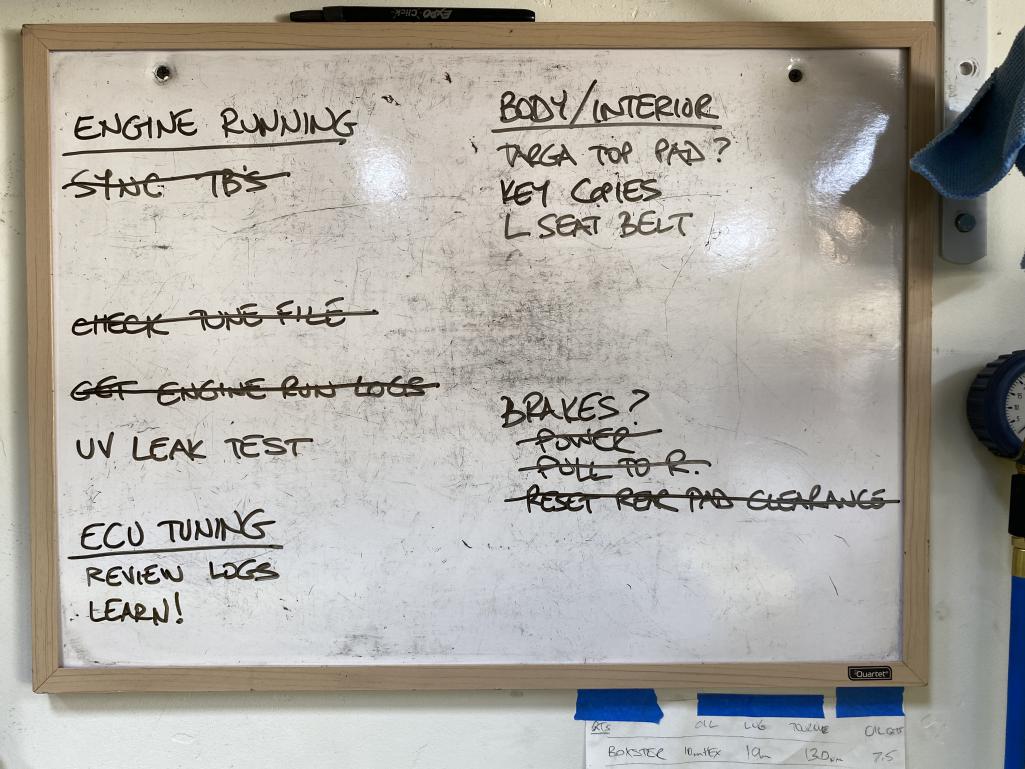 EXPO Click
ENGINE RUNNING
SYNC TB'S
CHECK TUNE FILE
GET ENGINE RUN LOGS
UV LEAK TEST
ECU TUNING
REVIEW LOGS
LEARN!
BODY/INTERIOR
TARGA TOP PAD?
KEY COPIES
L SEAT BELT
BRAKES?
POWER
PULL TO R.
RESET REAR PAD CLEARANCE
Quartet
OIL LUG TORQUE
BOXSTER 10mmHEX 19m 130nm 7.5